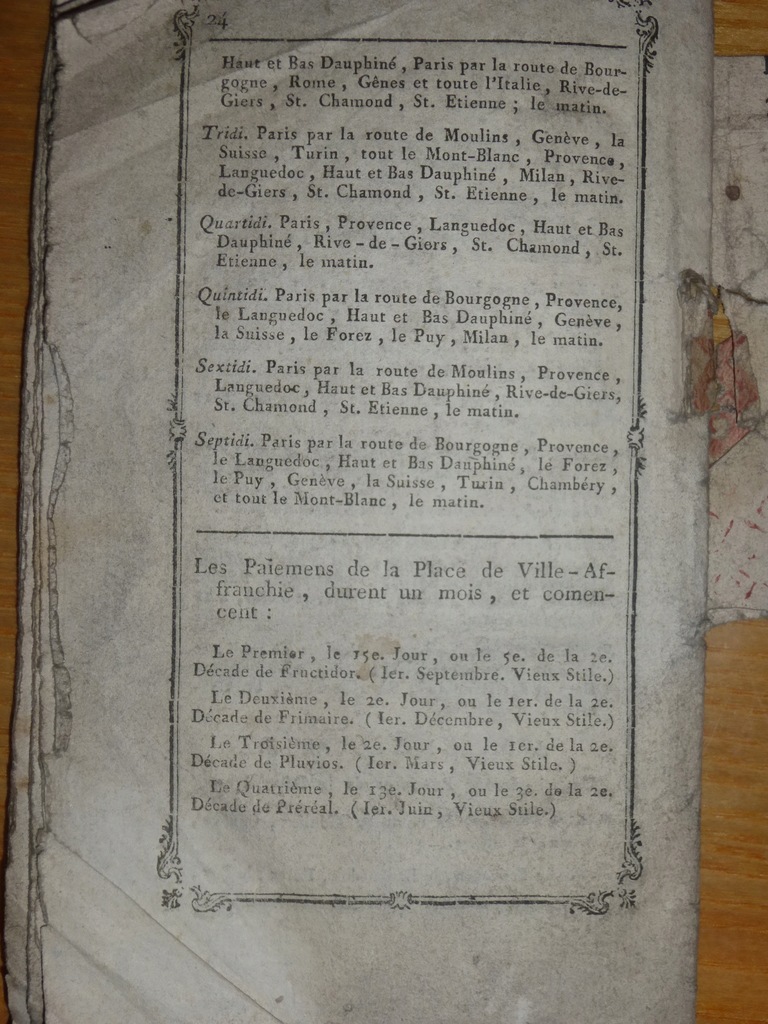 24
Haut et Bas Dauphiné, Paris par la route de Bour-
gogne, Rome, Gênes et toute l'Italie, Rive-de-
Giers, St. Chamond, St. Etienne; le matin.
Tridi. Paris par la route de Moulins, Genève, la
Suisse, Turin, tout le Mont-Blanc, Provence,
Languedoc, Haut et Bas Dauphiné, Milan, Rive-
de-Giers, St. Chamond, St. Etienne, le matin.
Quartidi. Paris, Provence, Languedoc, Haut et Bas
Dauphiné, Rive-de-Giers, St. Chamond, St.
Etienne, le matin.
Quintidi. Paris par la route de Bourgogne, Provence,
le Languedoc, Haut et Bas Dauphiné, Genève,
la Suisse, le Forez, le Puy, Milan, le matin.
Sextidi. Paris par la route de Moulins, Provence,
Languedoc, Haut et Bas Dauphiné, Rive-de-Giers,
St. Chamond, St. Etienne, le matin.
Septidi. Paris par la route de Bourgogne, Provence,
le Languedoc, Haut et Bas Dauphiné, le Forez,
le Puy, Genève, la Suisse, Turin, Chambéry,
et tout le Mont-Blanc, le matin.
Les Paîemens de la Place de Ville-Af-
franchie, durent un mois, et comen-
cent :
Le Premier, le 15e. Jour, ou le 5e. de la 2e.
Décade de Fructidor. (1er. Septembre. Vieux Stile.)
Le Deuxième, le 2e. Jour, ou le 1er. de la 2e.
Décade de Frimaire. (1er. Décembre, Vieux Stile.)
Le Troisième, le 2e. Jour, ou le 1er. de la 2e.
Décade de Pluvios. (1er. Mars, Vieux Stile.)
Le Quatrième, le 13e. Jour, ou le 3e. de la 2e.
Décade de Préréal. (1er. Juin, Vieux Stile.)